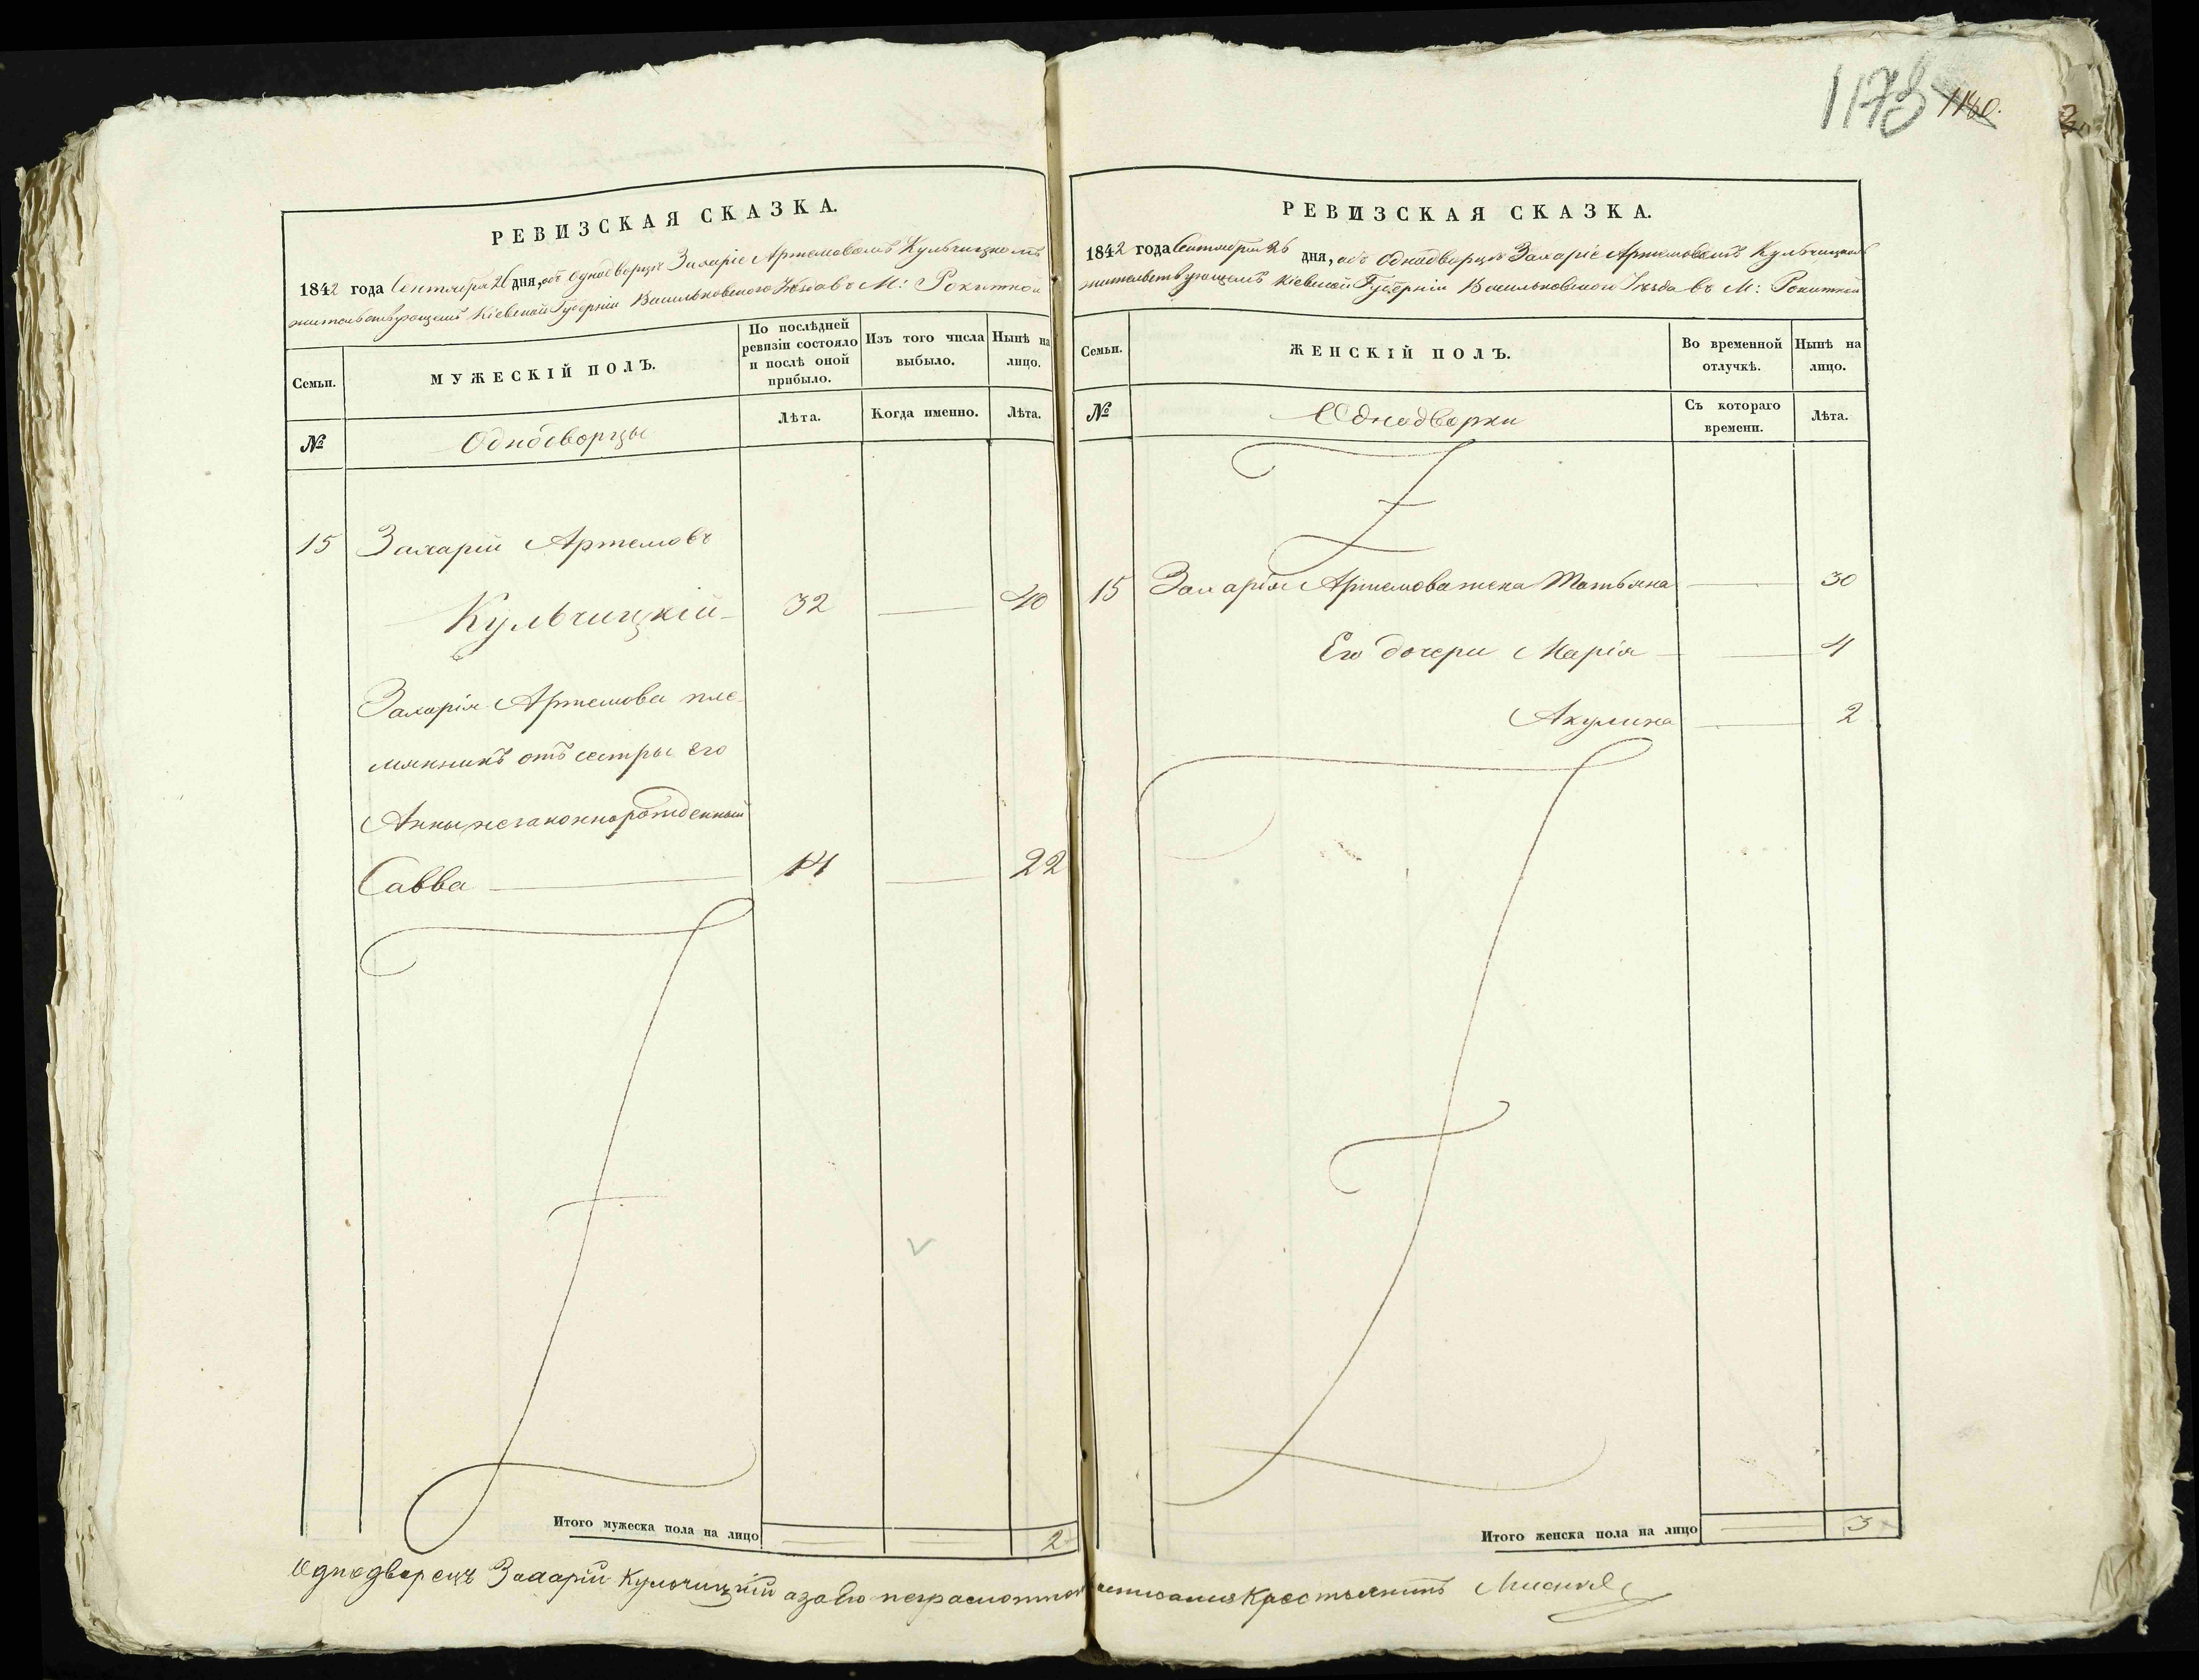 1173 1180.
РЕВИЗСКАЯ СКАЗКА.
1842 года Сентября 26 дня, объ Однодворцѣ Захаріе Артемовомъ Кульчицкомъ
жительствующемъ Кіевской Губерніи Васильковскаго Уѣзда въ М: Рокитной
Семьи.
МУЖЕСКІЙ ПОЛЪ.
По послѣдней ревизіи состояло и послѣ оной прибыло.
Изъ того числа выбыло.
Нынѣ на лицо.
№
Однодворцы
Лѣта.
Когда именно.
Лѣта.
15 Захарій Артемовъ
Кульчицкій 32 — 40
Захарія Артемова пле-
мянникъ отъ сестры его
Анны незаконнорожденный
Савва — 14 — 22
Итого мужеска пола на лицо — — 2
РЕВИЗСКАЯ СКАЗКА.
1842 года Сентября 26 дня, объ Однодворцѣ Захаріе Артемовомъ Кульчицкомъ
жительствующемъ Кіевской Губерніи Васильковскаго Уѣзда въ М: Рокитной
Семьи.
ЖЕНСКІЙ ПОЛЪ.
Во временной отлучкѣ.
Нынѣ на лицо.
№
Однодворки
Съ котораго времени.
Лѣта.
15 Захарія Артемова жена Татьяна — 30
Его дочери Марія — 4
Акулина — 2
Итого женска пола на лицо — 3
Однодворецъ Захарій Кульчицкій а за его неграмотного росписался Крестьянинъ